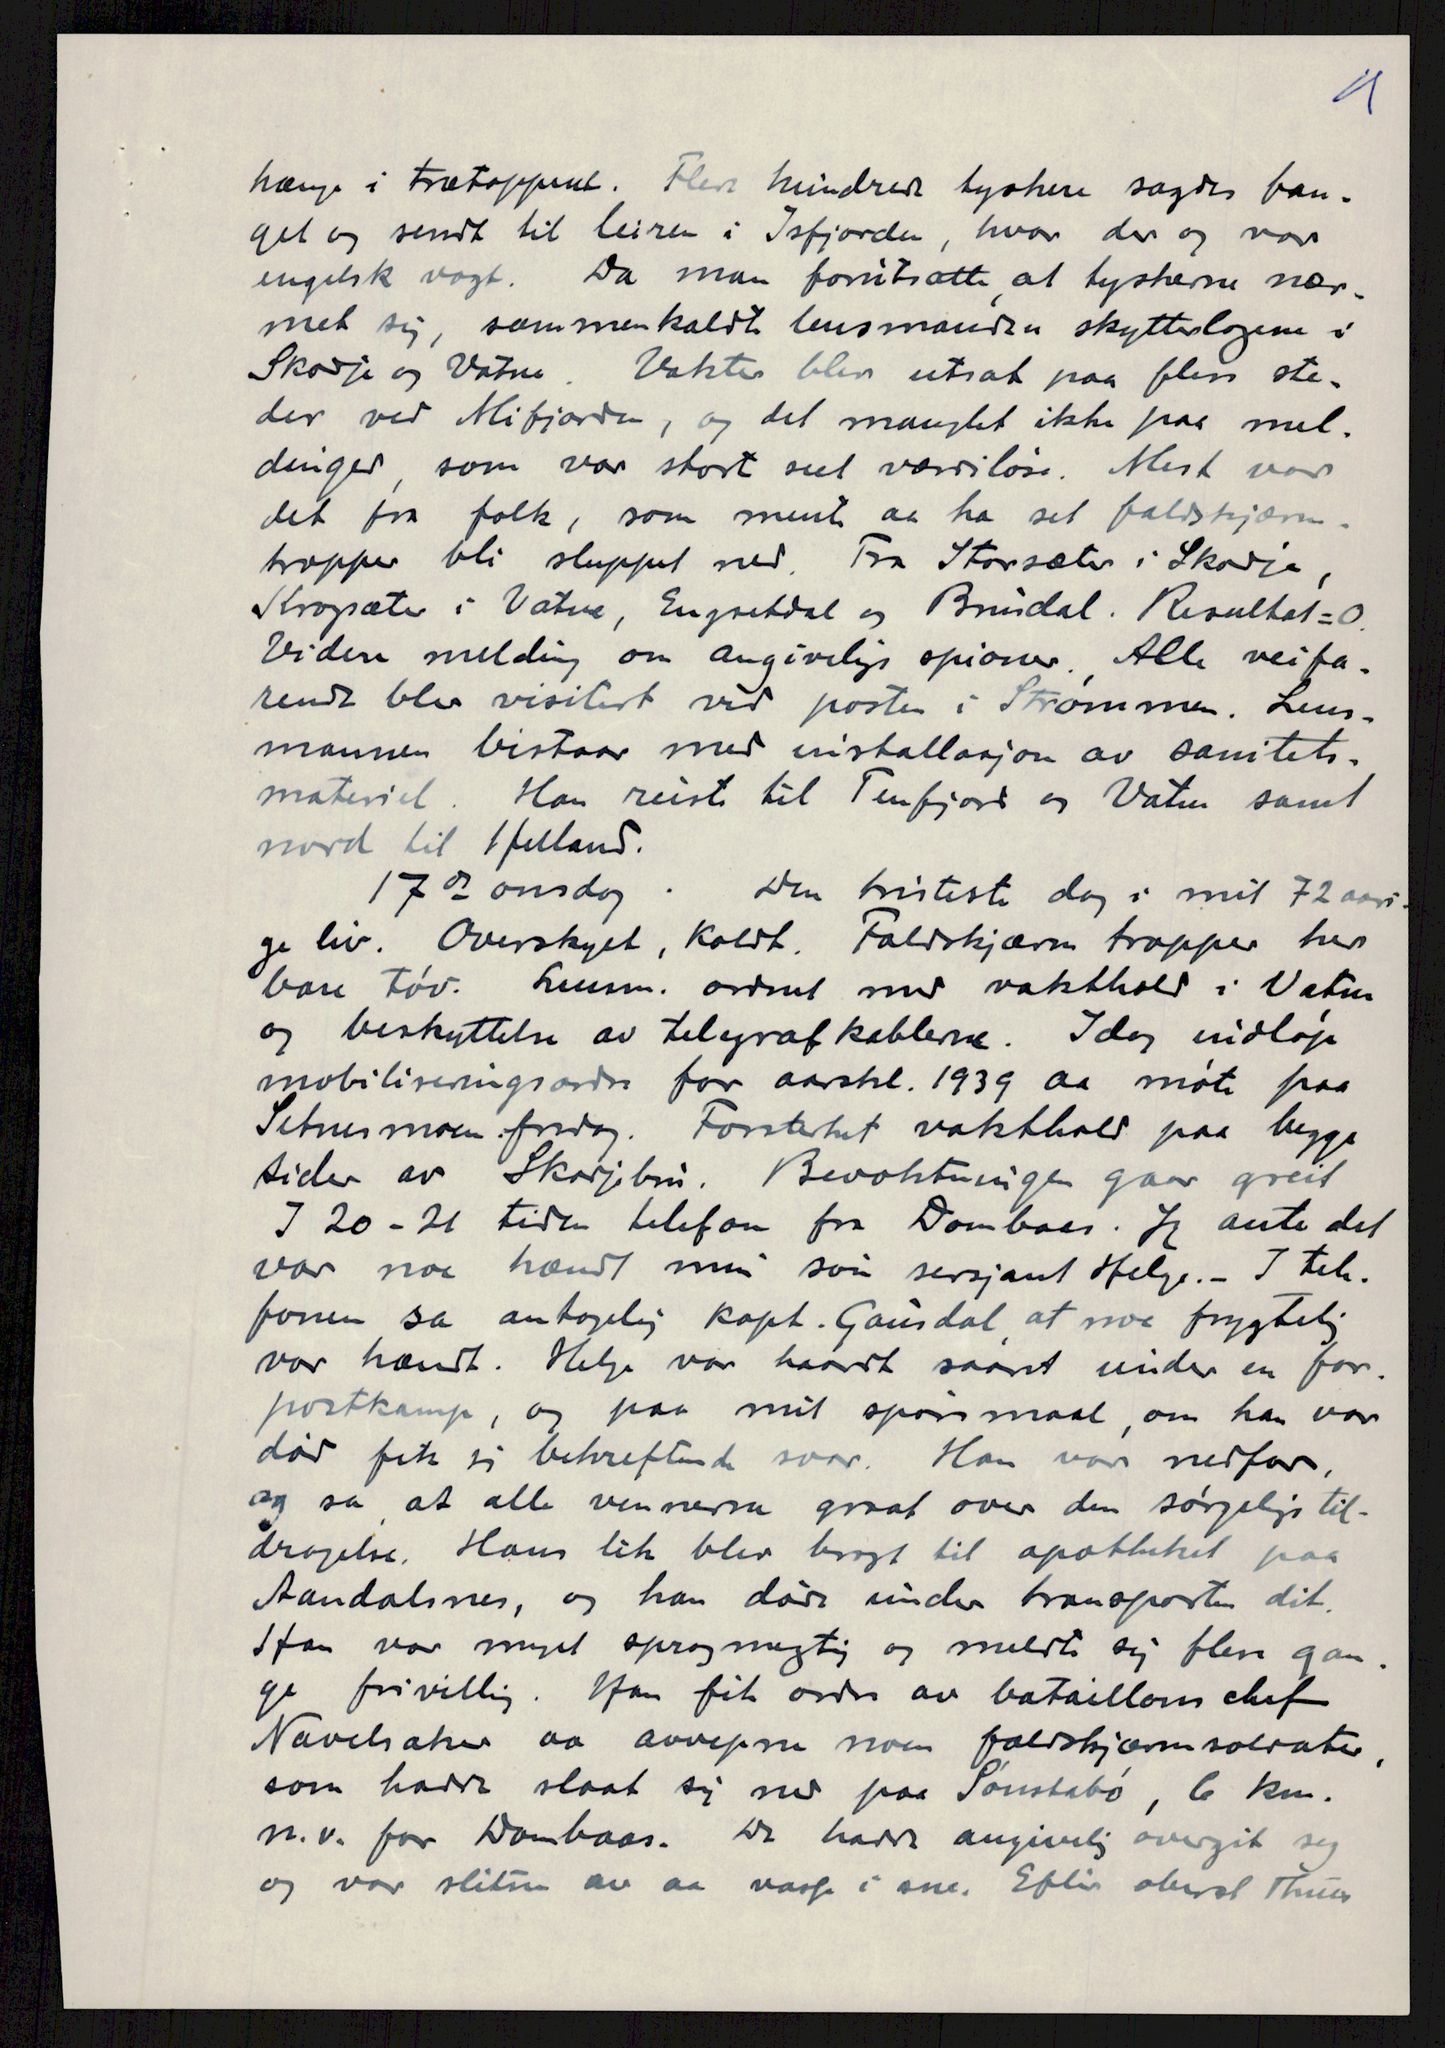 4
hænge i trætoppene. Flere hundrede tyskere sagdes fan-
get og sendt til leiren i Isfjorden, hvor der og var
engelsk vagt. Da man forutsatte, at tyskerne nær-
met sig, sammenkaldte lensmanden skytterlagene i
Skodje og Vatne. Vakter blev utsat paa flere ste-
der ved Mifjorden, og det manglet ikke paa mel-
dinger, som var stort set værdiløse. Mest var
det fra folk, som mente aa ha set faldskjærm-
tropper bli sluppet ned. Fra Storsæter i Skodje,
Krogsæter i Vatne, Engsetdal og Brusdal. Resultat = 0.
Videre melding om angivelige spioner. Alle veifa-
rende blev visitert ved posten i Strømmen. Lens-
mannen bistaar med installasjon av sanitets-
materiel. Han reiste til Tenfjord og Vatne samt
nord til Helland.
17de onsdag. Den tristeste dag i mit 72 aari-
ge liv. Overskyet, koldt. Faldskjærm tropper her
bare tøv. Lensm. ordnet med vakthold i Vatne
og beskyttelse av telegrafkablerne. Idag indløp
mobiliseringsordre for aarskl. 1939 aa møte paa
Setnesmoen fredag. Forsterket vakthold paa begge
sider av Skodjebru. Bevoktningen gaar greit
I 20-21 tiden telefon fra Dombaas. Jg ante det
var noe hændt min søn sersjant Helge. - I tele-
fonen sa antagelig kapt. Gausdal, at noe frygtelig
var hændt. Helge var haardt saaret under en for-
postkamp, og paa mit spørsmaal, om han var
død fik jg bekreftende svar. Han var nedfor,
og sa, at alle vennerne graat over den sørgelige til-
dragelse. Hans lik blev bragt til apotheket paa
Aandalsnes, og han døde under transporten dit.
Han var meget sprogmegtig og meldte sig flere gan-
ge frivillig. Han fik ordre av bataillons chef
Navelsaker aa avvepne noen faldskjærmsoldater,
som hadde slaat sig ned paa Sønstabø, 6 km.
n.v. for Dombaas. De hadde angivelig overgit seg
og var slitne av aa vasse i sne. Efter oberst Thues